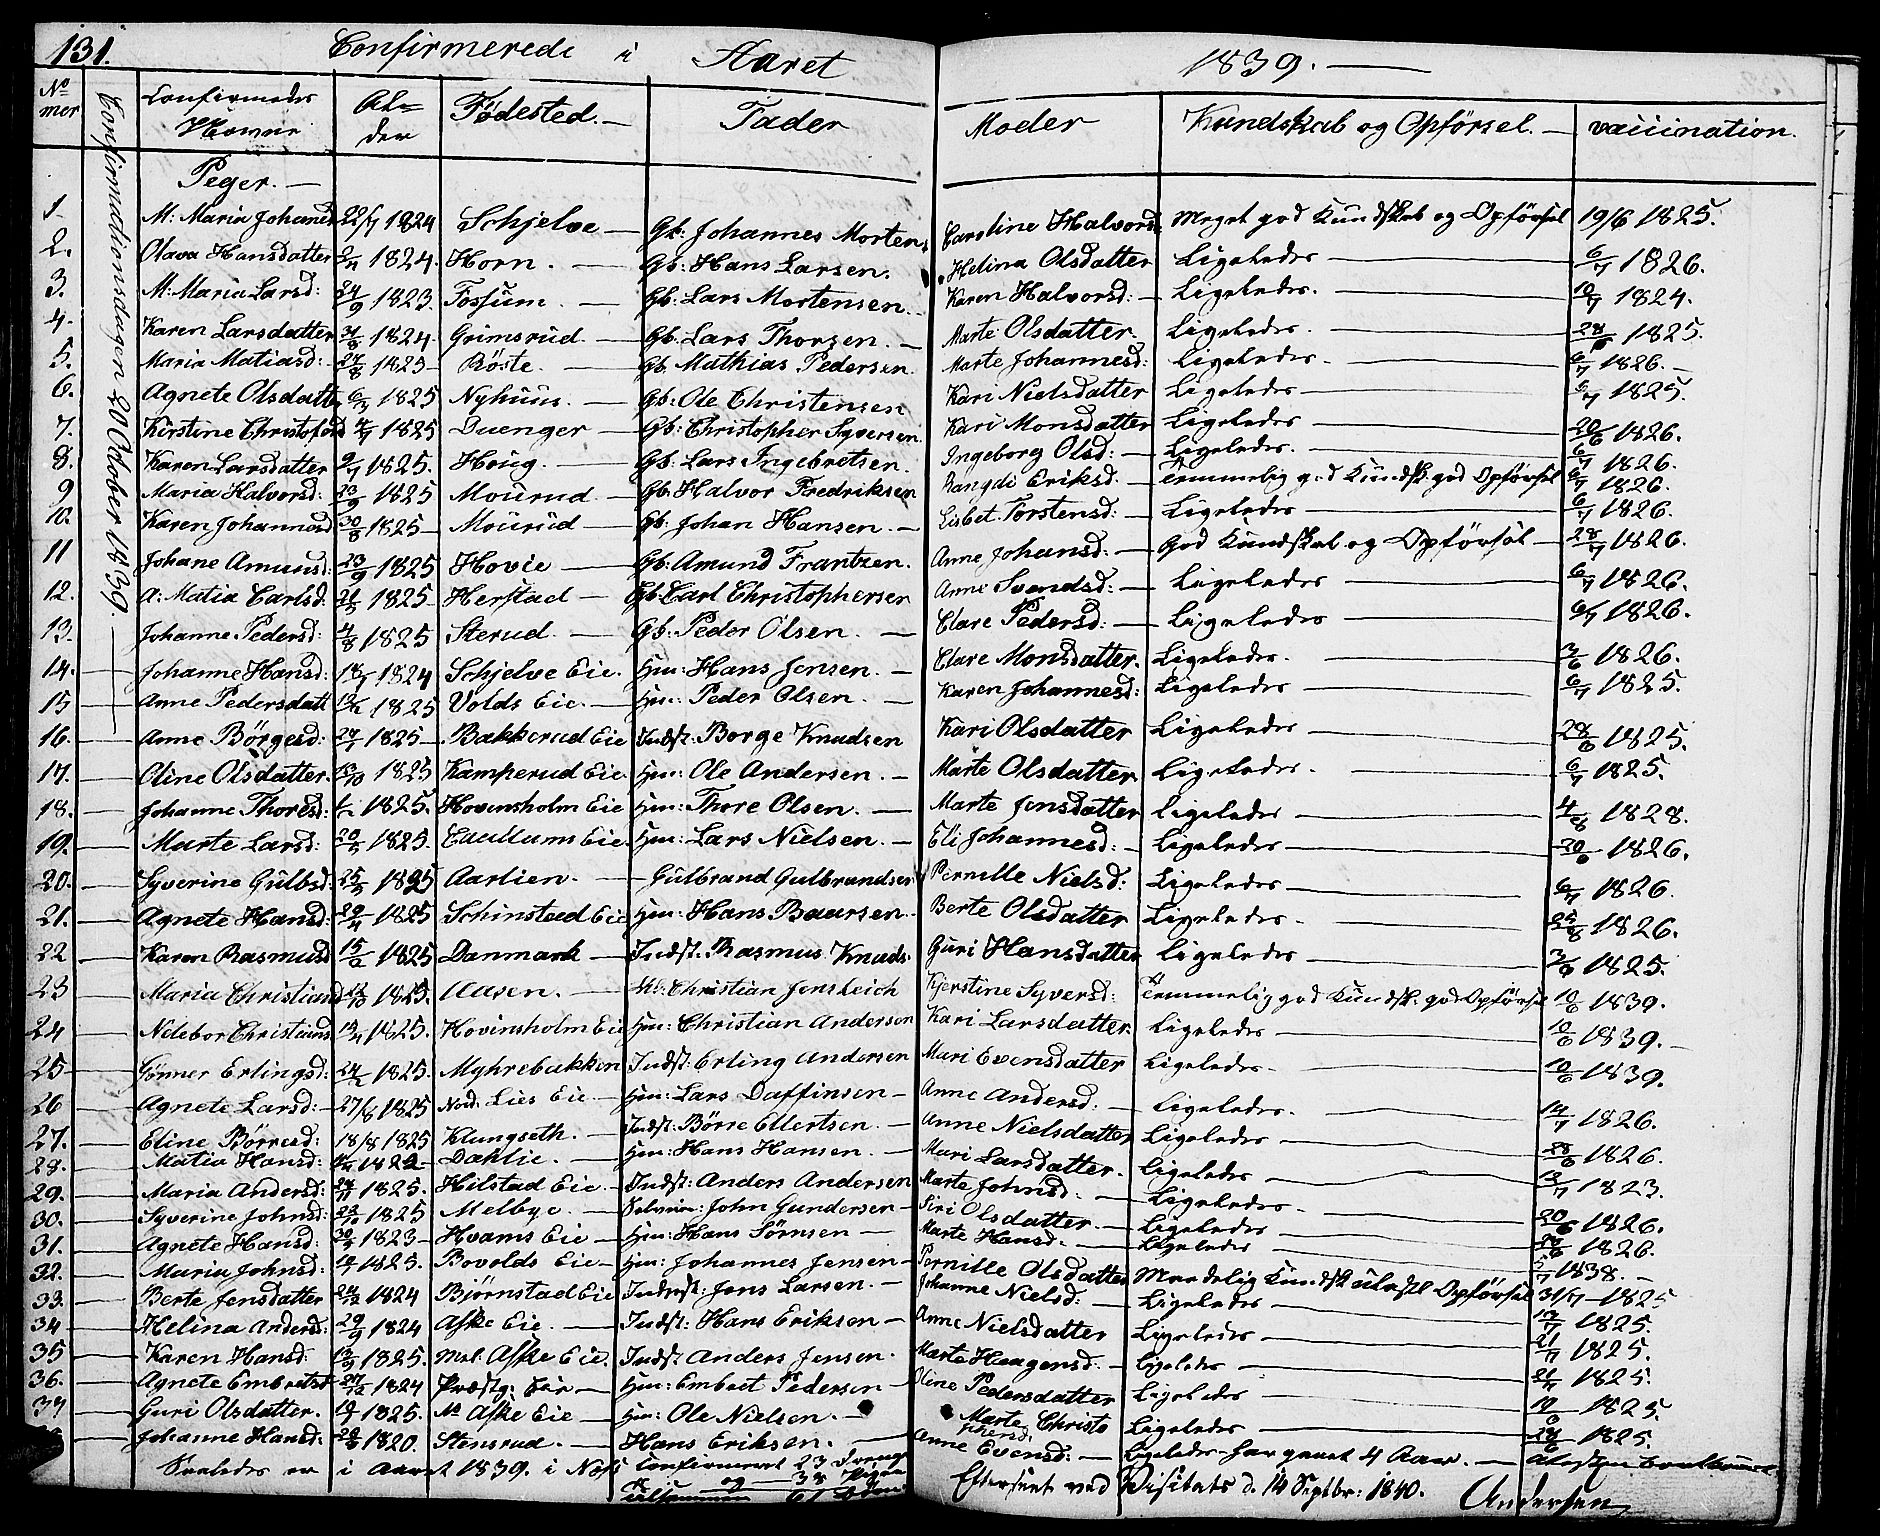 131. Confirmerede i Aaret 1839.
No mer Confirmedes Navne Alder Fødested. Fader Moder Kundskab og Opførsel. vaccination.
Confirmationsdagen 20 October 1839.
Peger.
1 M: Maria Johanes 22/7 1824 Schjelve Gb: Johannes Morten Caroline Halvorsd. Meget god Kundskab og Opførsel 19/6 1825.
2. Olava Hansdatter 1824. Horn. Gb: Hans Larsen. Helina Olsdatter Ligeledes 6/7 1826.
3. M: Maria Larsd: 24/9 1823. Fossum. Gb: Lars Mortensen. Karen Halvorsd: Ligeledes. 10/7 1824.
4. Karen Larsdatter 1824. Grimsrud Gb: Lars Thorsen. Marte Olsdatter Ligeledes. 1825.
5. Maria Matiasd: 27/8 1825 Röste. Gb. Mathias Pedersen. Marte Johannesd: Ligeledes. 6/7 1826.
6. Agnete Olsdatte 1825 Nyhuus. Gb: Ole Christensen Kari Nielsdatter Ligeledes 6/7 1825.
7. Kirstine Christofersd 1825 Duenger Gb: Christopher Syversen. Kari Monsdatter Ligeledes 20/6 1826.
8. Karen Larsdatter 9/7 1825. Houg. Gb: Lars Ingebretsen. Ingeborg Olsd: Ligeledes. 6/7 1826.
9 Maria Halvorsd: 23/9 1825 Mourud Gb: Halvor Fredriksen Rangdi Eriksd. Temmelig god Kundsk. god Opførsel 6/7 1826.
10. Karen Johannesd 30/8 1825 Mourud Gb: Johan Hansen. Lisbet Torstensd: Ligeledes 6/7 1826.
11 Johane Amunsd: 23/9 1825 Hovie Gb: Amund Frantzen. Anne Johansd: God Kundskab og Opførsel 28/7 1826.
12. A: Matia Carlsd: 1825 Herstad Gb: Carl Christophersen Anne Svendsd: Ligeledes 6/7 1826.
13. Johanne Pedersd: 4/8 1825 Sterud. Gb: Peder Olsen. Clare Pedersd: Ligeledes 6/7 1826.
14. Johanne Hansd: 1824 Schjelve Eie. Hm: Hans Jensen. Clare Monsdatter. Ligeledes. 3/6 1826.
15 Anne Pedersdatt 1825 Volds Eie. Hm: Peder Olsen. Karen Johannesd: Ligeledes 6/7 1825.
16. Anne Börgesd: 1825 Bakkerud Eie Indst: Borge Knudsen Kari Olsdatter Ligeledes 28/6 1825.
17. Oline Olsdatter. 13/10 1825 Kamperud Eie. Hm: Ole Andersen. Marte Olsdatter Ligeledes. 6/7 1825.
18. Johanne Thoresd: 1825. Hovinsholm Eie Hm: Thore Olsen. Marte Jensdatter Ligeledes 4/8 1828.
19. Marte Larsd: 1825. Eie. Hm: Lars Nielsen. Eli Johannesd: Ligeledes 20/6 1826.
20. Syverine Gulbsd: 1825 Aarlien. Gulbrand Gulbrandsen Pernille Nielsd: Ligeledes 6/7 1826.
21. Agnete Hansd: 29/4 1825 Schinstad Eie Hm: Hans Baarsen. Berte Olsdatter Ligeledes 1826.
22 Karen Rasmusd 1825 Danmark Indst. Rasmus Knuds. Guri Hansdatter Ligeledes 1825.
23 Maria Christiansd 1825. Aasen. Christian Jensleich Kjerstine Syversd: Temmelig god Kundsk: god Opførsel 10/6 1839.
24 Nilebor Christians 1825. Hovinsholm Eie Hm: Christian Andersen Kari Larsdatter. Ligeledes 10/6 1839.
25 Gönner Erlingsd: 1825. Myhrebakken Indst: Erling Andersen Mari Evensdatter Ligeledes. 10/6 1839.
26 Agnete Larsd: 27/6 1825 Nord. Lies Eie Hm: Lars Daffinsen Anne Andersd: Ligeledes. 14/7 1826.
27. Eline Börresd: 18/8 1825 Klungseth. Indst: Börre Ellertsen. Anne Nielsdatter Ligeledes 28/6 1826.
28. Matia Hansd: 1822 Dahlie. Hm: Hans Hansen. Mari Larsdatter. Ligeledes 1823.
29. Maria Andersd: 1825. Hilstad Eie. Indst: Anders Andersen Marte Johnsd: Ligeledes. 20/6 1826.
30. Syverine Johnsd: 1825 Melbye. Selveier: John Gundersen Siri Olsdatter. Ligeledes 1826.
31. Agnete Hansd: 1823 Hvams Eie Hm: Hans Sörnsen Marte Hansd. Ligeledes 1838.
32. Maria Johnsd: 1825. Bovolds Eie Hm: Johannes Jensen Pernille Olsdatter Maadelig Kundsk Opførsel 31/7 1825
33. Berte Jensdatter 1824 Björnstad Eie Indst: Jens Larsen. Johanne Nielsd: Ligeledes 1825.
34 Helina Andersd: 29/9 1824 Aske Eie. Indst: Hans Eriksen Anne Nielsdatter Ligeledes 1825.
35 Karen Hansd. 13/9 1825. Aske Eie. Indst. Anders Jensen. Marte Haagensd. Ligeledes 1825.
36. Agnete Embretsd 27/12 1824 Præstg: Eie Hm: Embret Pedersen Oline Pedersdatter Ligeledes 1825.
37 Guri Olsdatter. 1825. Aske Eie Hm: Ole Nielsen. Marte Christophersd: Ligeledes 1825.
Johanne Hansd: 1820. Stensrud. Hans Eriksen. Anne Evensd: Ligeledes har gaaet 4 Aar.
Saaledes er i Aaret 1839. i Næs Confirmeret 23 Drenge
og 38 Piger
61
Efterseet ved Visitats d. 14 Septbr: 1840. Andersen